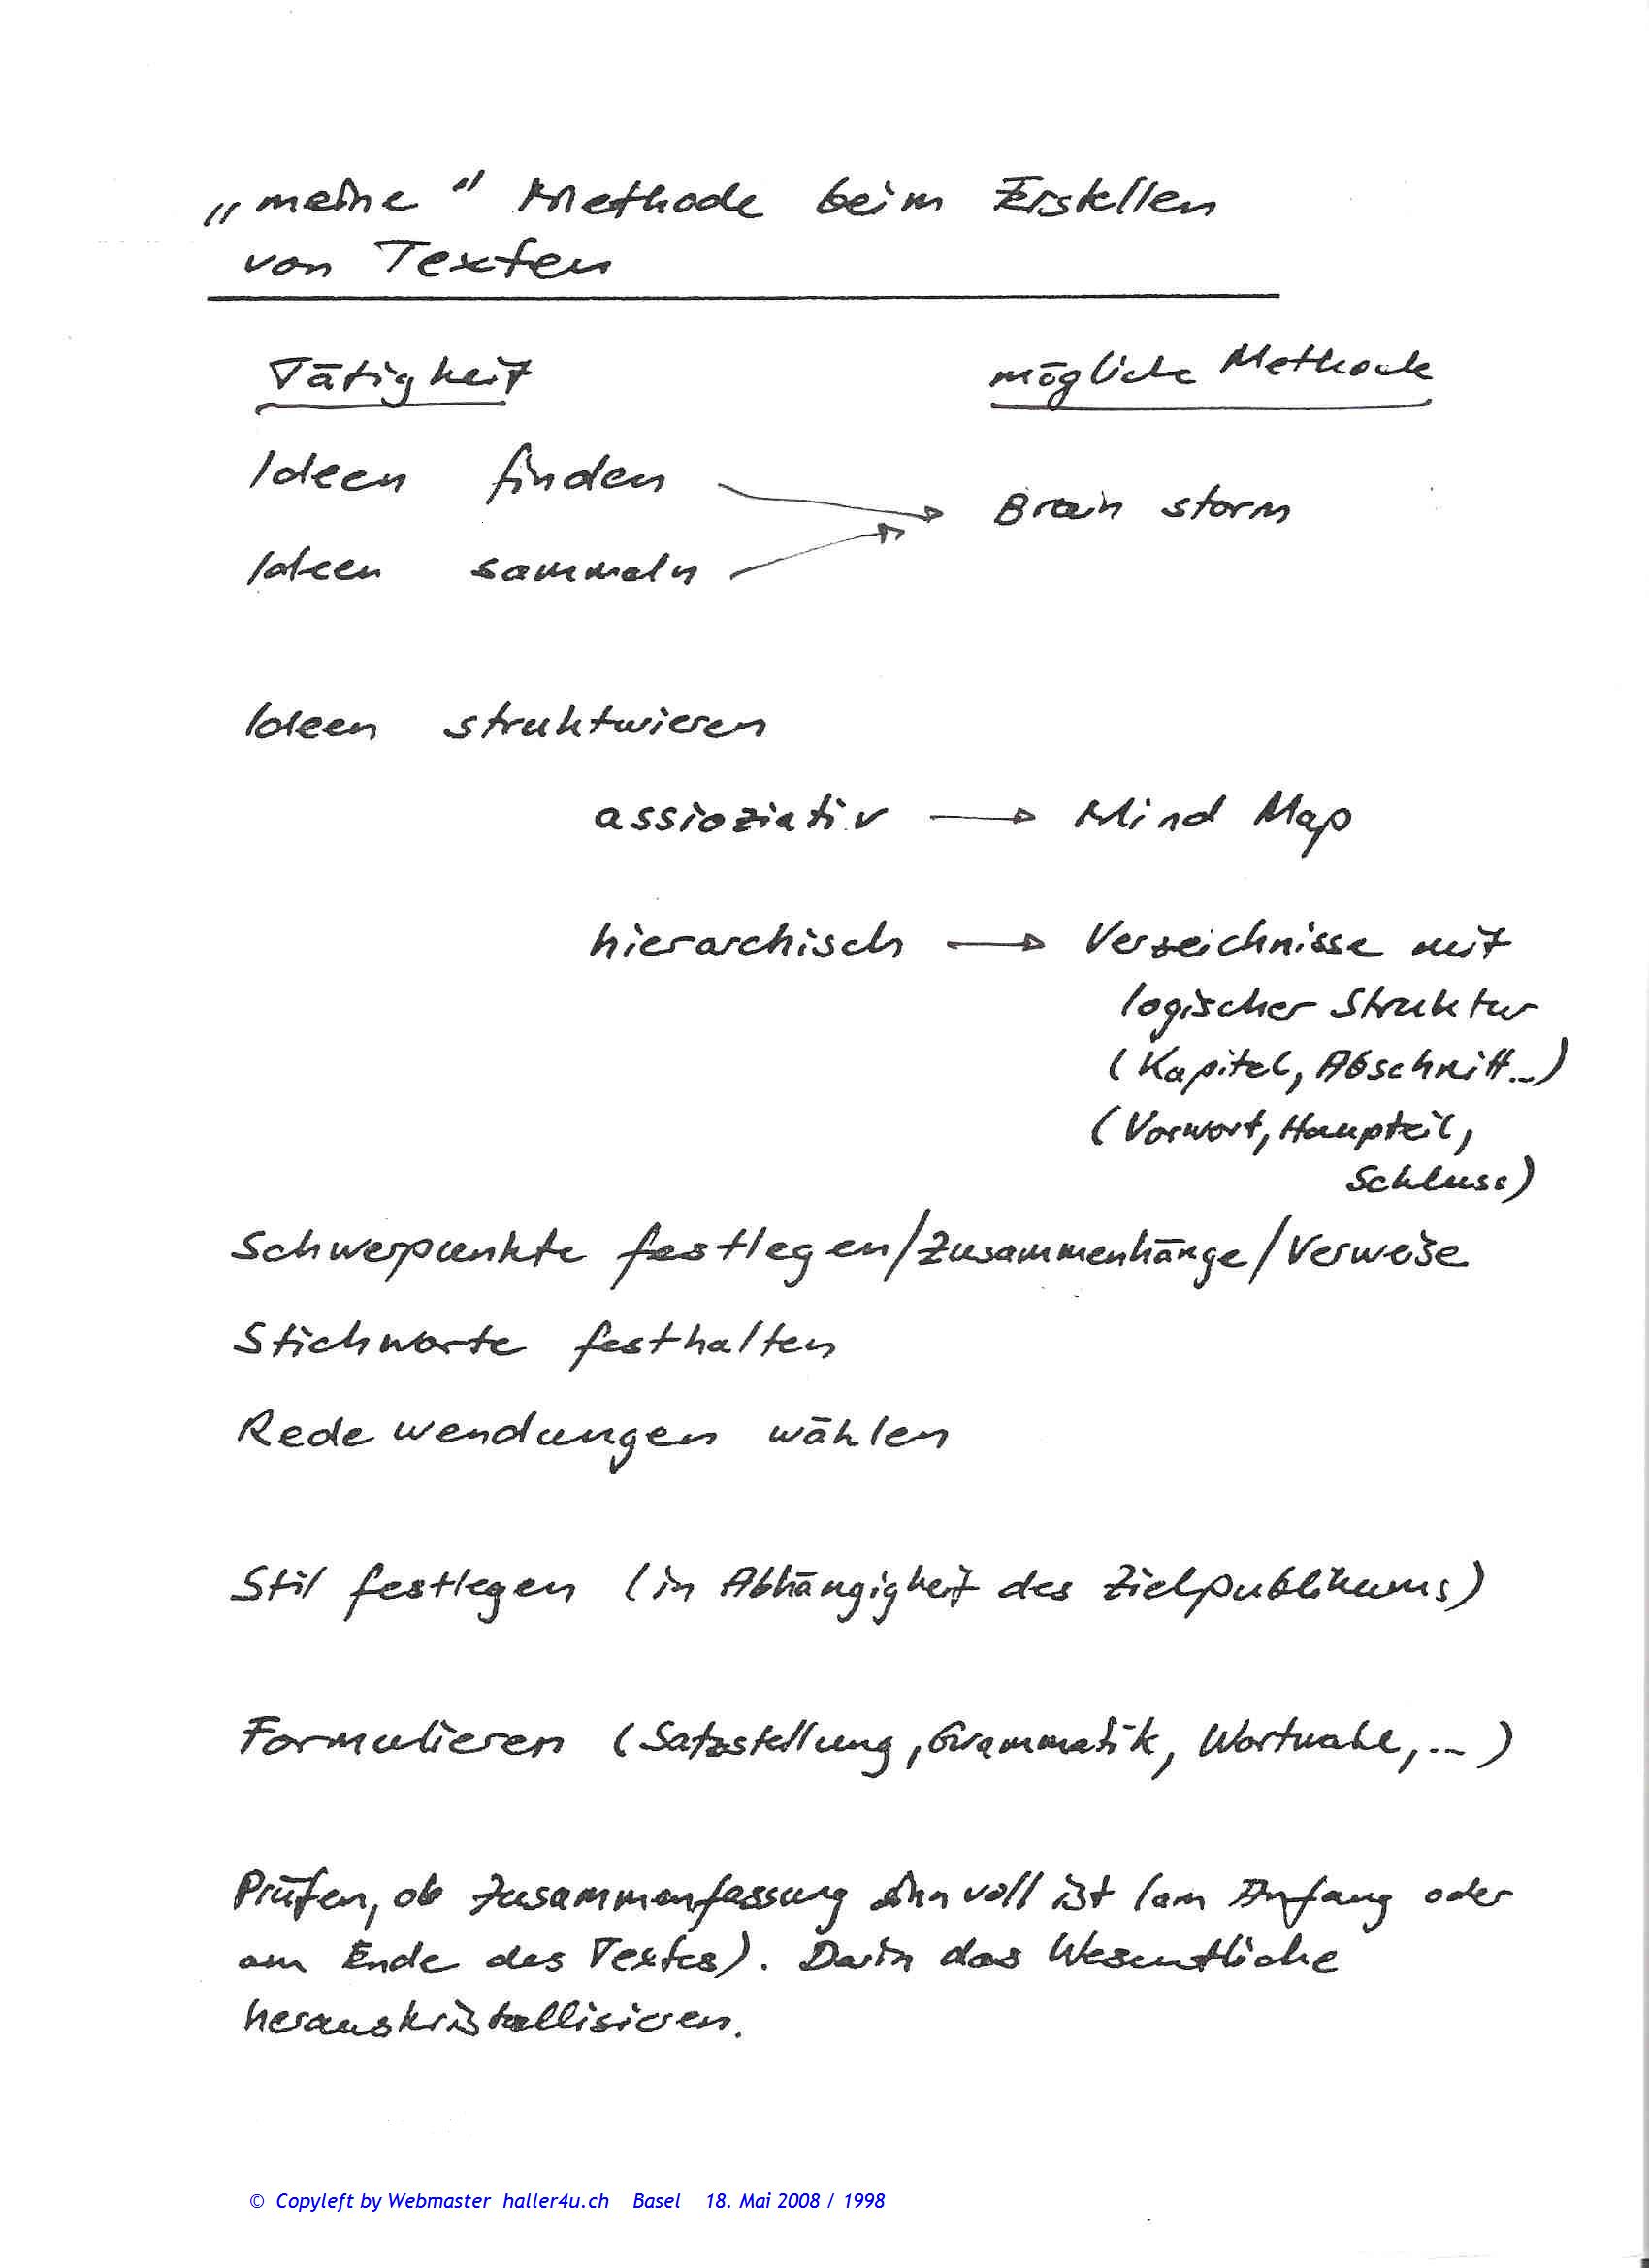 „meine" Methode beim Erstellen
von Texten
Tätigkeit
mögliche Methode
Ideen finden
Brain storm
Ideen sammeln
Ideen strukturieren
assioziativ → Mind Map
hierarchisch → Verzeichnisse mit
logischer Struktur
(Kapitel, Abschnitt...)
(Vorwort, Haupteil,
Schluss)
Schwerpunkte festlegen/Zusammenhänge/Verweise
Stichworte festhalten
Redewendungen wählen
Stil festlegen (in Abhängigkeit des Zielpublikums)
Formulieren (Satzstellung, Grammatik, Wortwahl, ... )
Prüfen, ob Zusammenfassung sinnvoll ist (am Anfang oder
am Ende des Textes). Darin das Wesentliche
herauskristallisieren.
© Copyleft by Webmaster haller4u.ch Basel 18. Mai 2008 / 1998